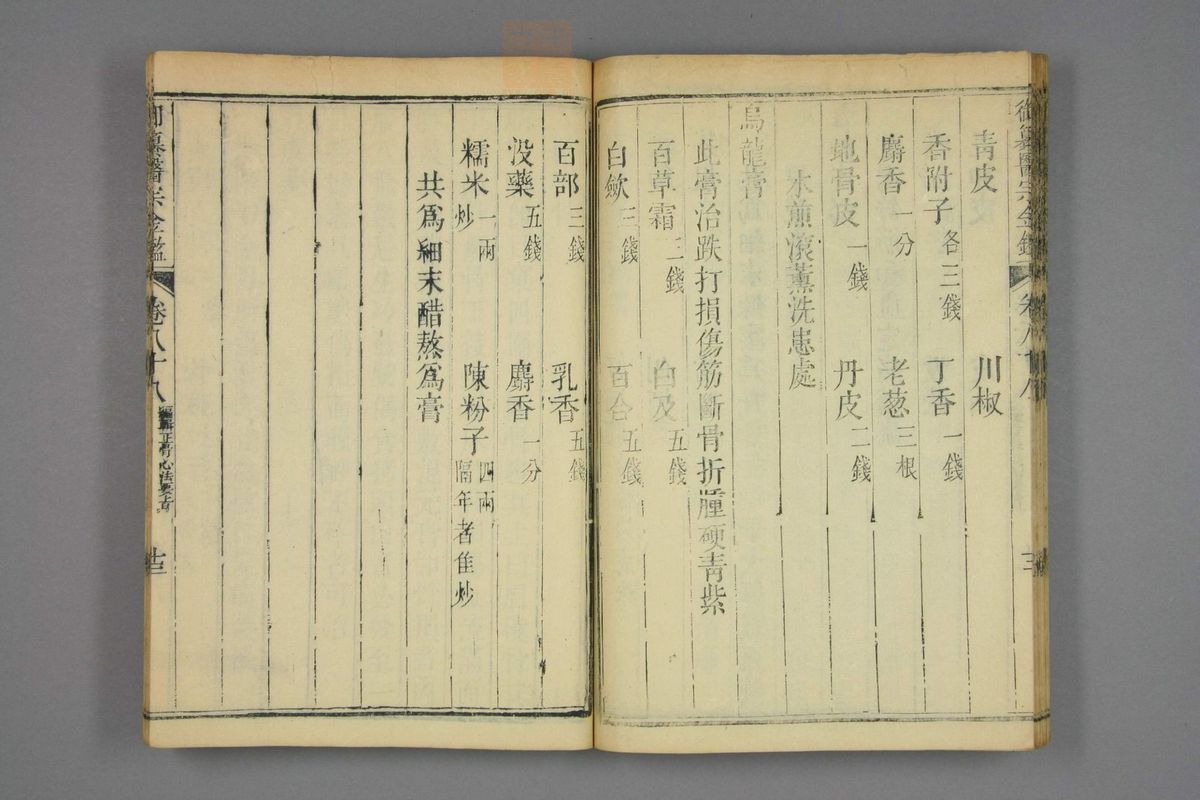 御纂醫宗金鑑
卷八十八
青皮 川椒
香附子各三錢 丁香一錢
麝香一分 老葱三根
地骨皮一錢 丹皮二錢
水煎滚薰洗患處
烏龍膏
此膏治跌打損傷筋斷骨折腫硬青紫
百草霜三錢 白及五錢
白歛三錢 百合五錢
百部三錢 乳香五錢
没藥五錢 麝香一分
糯米一兩炒 陳粉子四兩隔年者隹炒
共爲細末醋熬爲膏
御纂醫宗金鑑
卷八十八
編輯正骨心法要旨